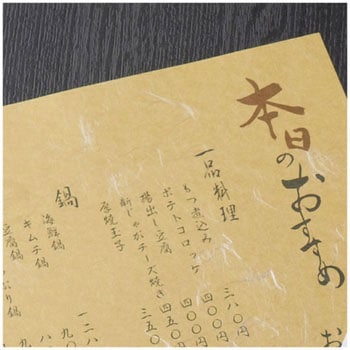 本日のおすすめ
お
一品料理
もつ煮込み 三八〇円
ポテトコロッケ 四〇〇円
揚出し豆腐 四五〇円
新じゃがチーズ焼き 三五〇
厚焼玉子
鍋
海鮮鍋
キムチ鍋
豆腐鍋